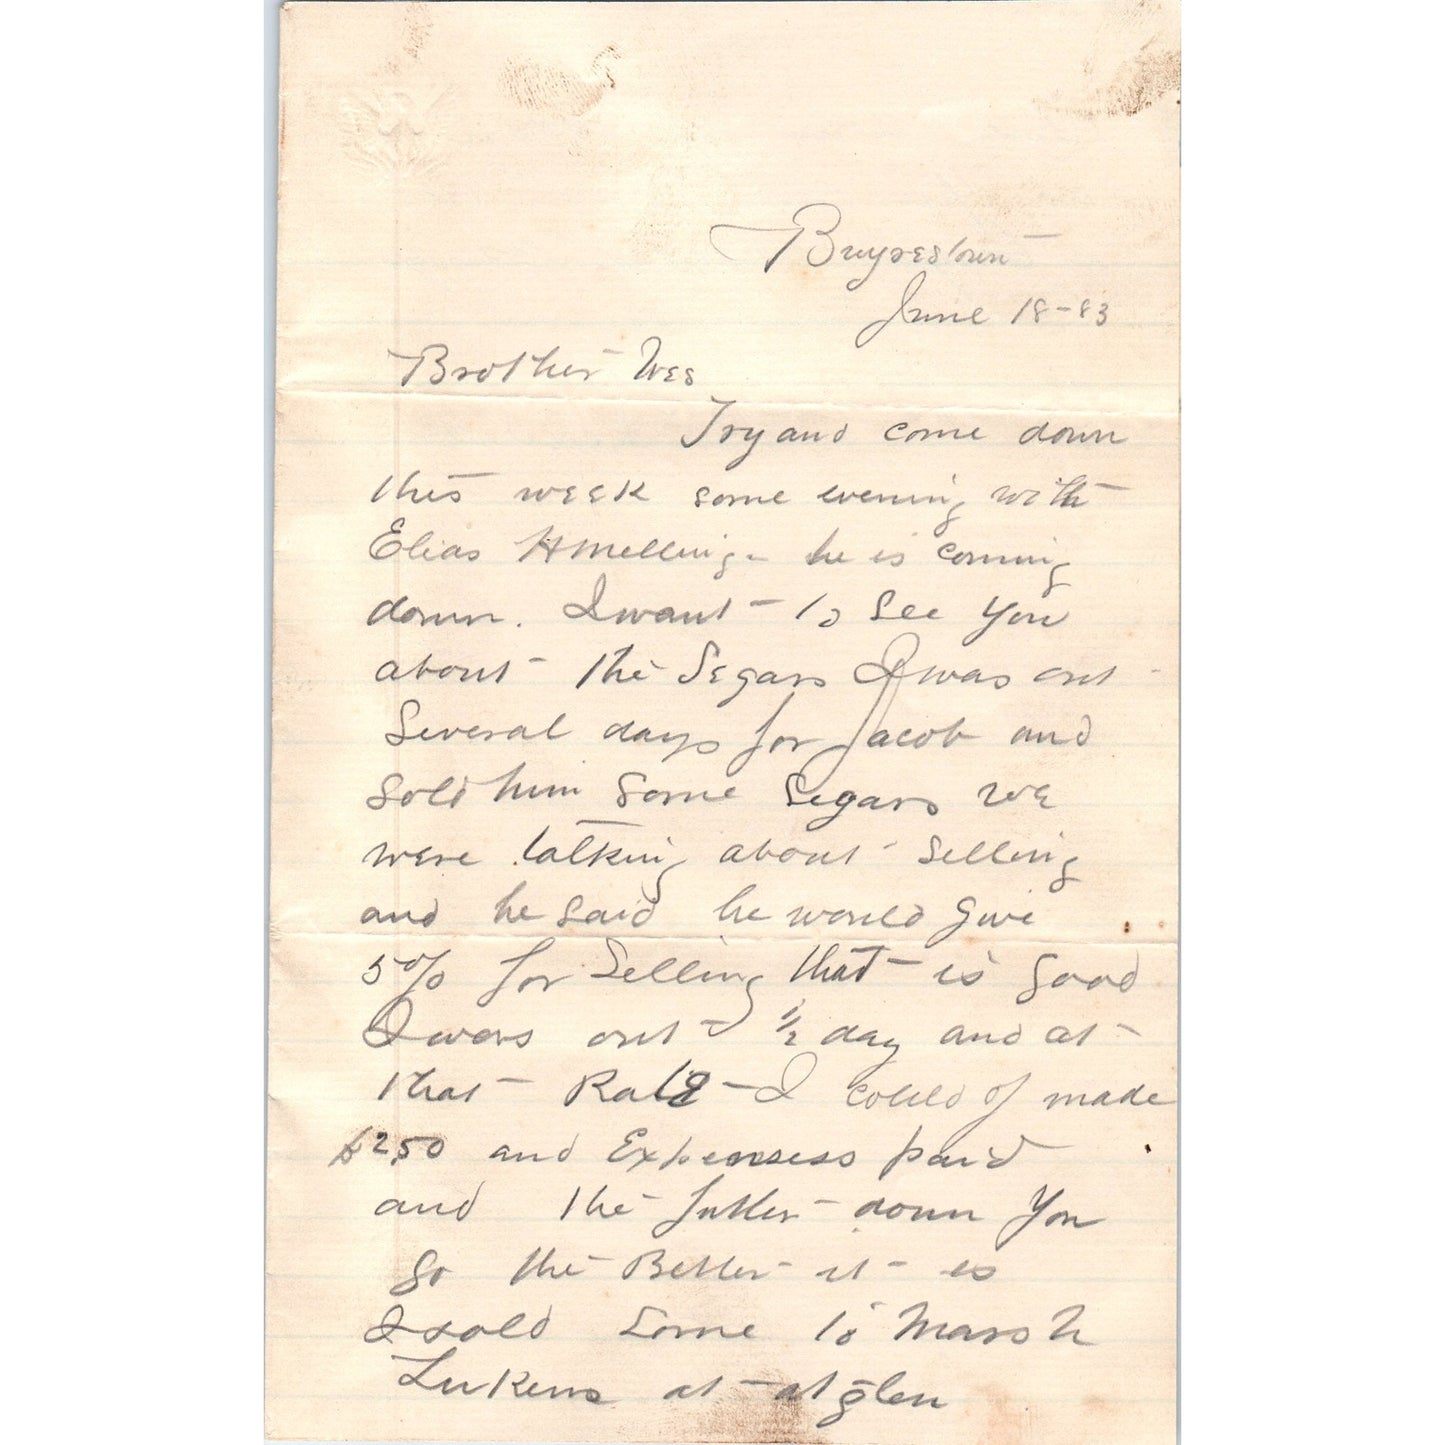 Buyrestown
June 18-83
Brother Wes
Try and come down
this week some evening with
Elias H he is coming
down. I want to See You
about the Segars I was out
Several days for Jacob and
Sold him Some Segars we
were talking about Selling
and he Said he would give
5% for Selling that is good
I was out 1/2 day and at
that Rate I could of made
$2.50 and Expensess paid
and the futher down You
go the Better it is
I sold Some to Marsh
Lukens at atglen